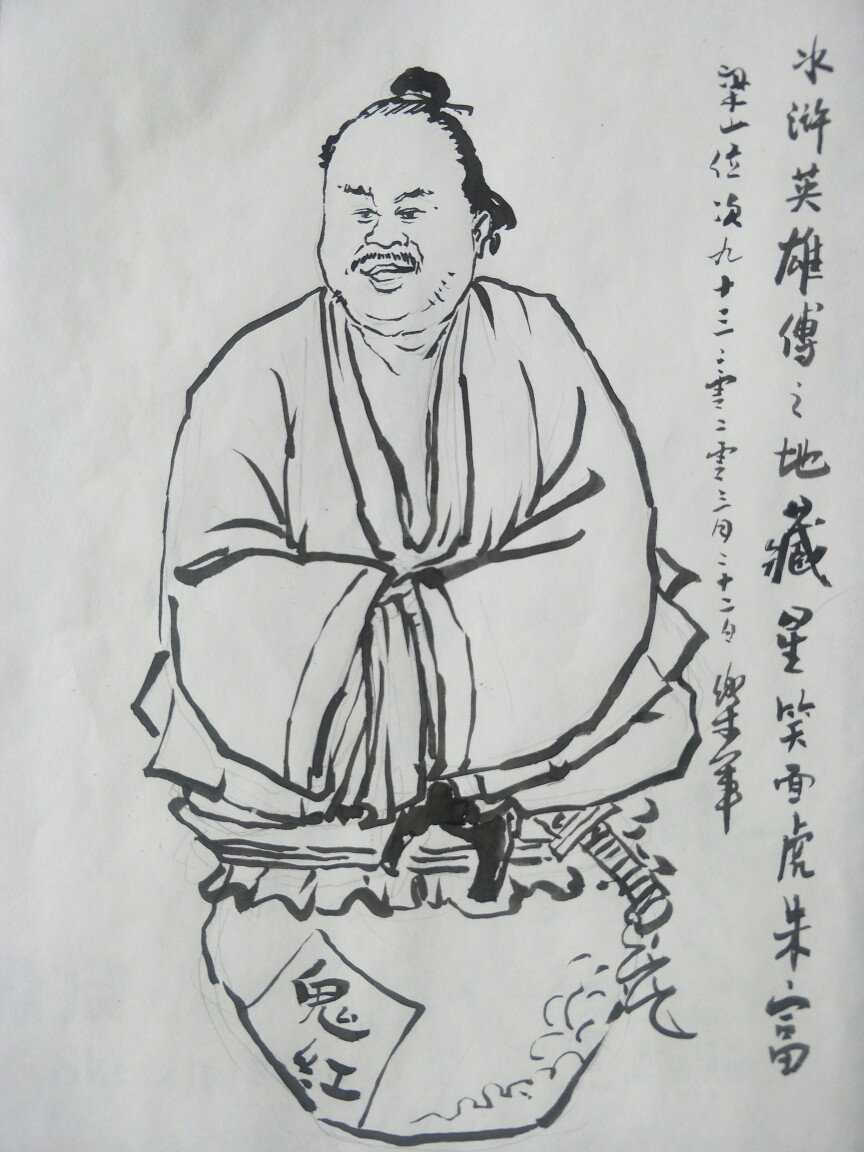 水浒英雄傳之地藏星笑面虎朱富
梁山位次九十三二零二零三月二十二日
鬼
紅